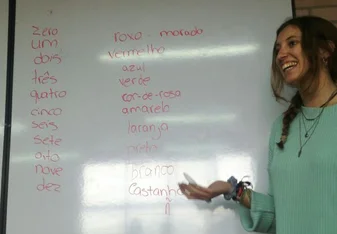 zero
um
dois
três
quatro
cinco
seis
sete
oito
nove
dez
roxo - morado
vermelho
azul
verde
cor-de-rosa
amarelo
laranja
branco
Castanho
ñ